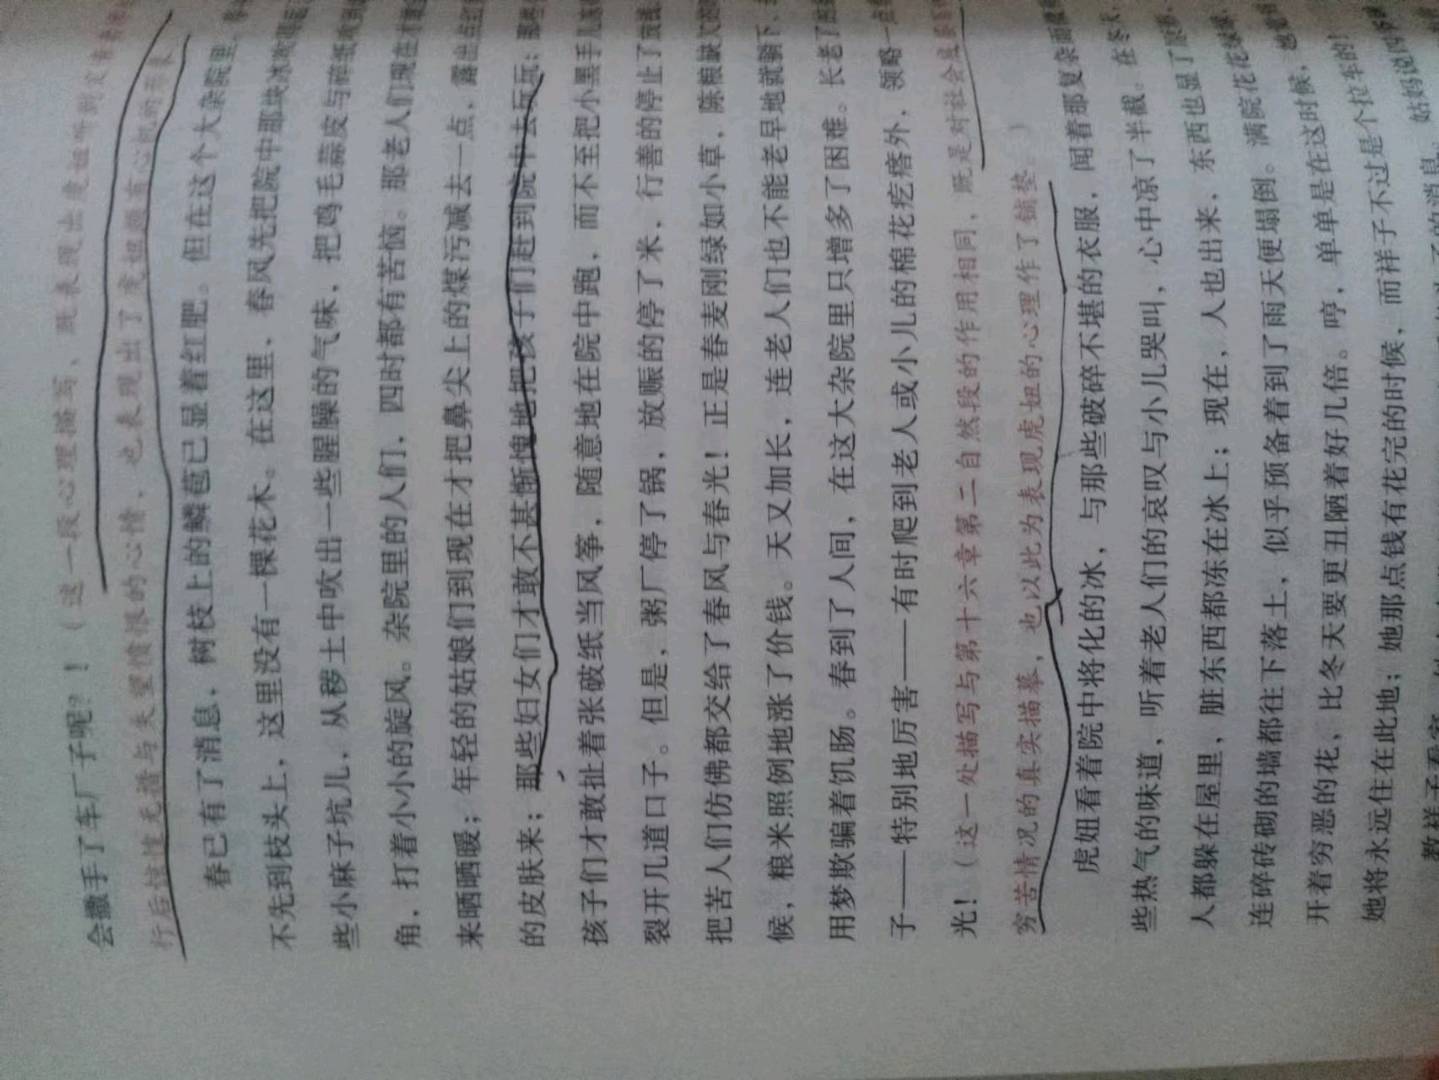 会撒手了车厂子呢？！（这一段心理描写，既表现出虎妞听到父亲
行后惊慌无措与失望愤恨的心情，也表现出了虎妞颇有心机的形象
春已有了消息，树枝上的鳞苞已显着红肥。但在这个大杂院里，
不先到枝头上，这里没有一棵花木。在这里，春风先把院中那块冰吹得
些小麻子坑儿，从秽土中吹出一些腥臊的气味，把鸡毛蒜皮与碎纸吹到
角，打着小小的旋风。杂院里的人们，四时都有苦恼。那老人们现在才
来晒晒暖；年轻的姑娘们到现在才把鼻尖上的煤污减去一点，露出点红
的皮肤来；那些妇女们才敢不甚惭愧地把孩子们赶到院中去玩玩；那些
孩子们才敢扯着张破纸当风筝，随意地在院中跑，而不至把小黑手儿
裂开几道口子。但是，粥厂停了锅，放赈的停了米，行善的停止了放钱
把苦人们仿佛都交给了春风与春光！正是春麦刚绿如小草，陈粮缺欠的
候，粮米照例地涨了价钱。天又加长，连老人们也不能老早地就躺下，
用梦欺骗着饥肠。春到了人间，在这大杂院里只增多了困难。长老了的
子——特别地厉害——有时爬到老人或小儿的棉花疙瘩外，领略一点
光！（这一处描写与第十六章第二自然段的作用相同，既是对社会
穷苦情况的真实描摹，也以此为表现虎妞的心理作了铺垫。）
虎妞看着院中将化的冰，与那些破碎不堪的衣服，闻着那复杂而
些热气的味道，听着老人们的哀叹与小儿哭叫，心中凉了半截。在冬天，
人都躲在屋里，脏东西都冻在冰上；现在，人也出来，东西也显了原形，
连碎砖砌的墙都往下落土，似乎预备着到了雨天便塌倒。满院花花绿绿，
开着穷恶的花，比冬天要更丑陋着好几倍。哼，单单是在这时候，
她将永远住在此地；她那点钱有花完的时候，而祥子不过是个拉车的！